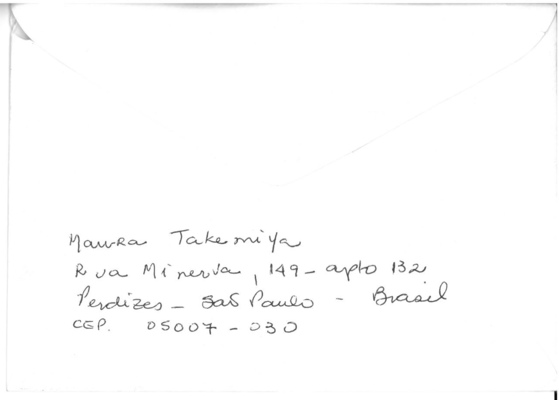 Maura Takemiya
Rua Minerva, 149 - apto 132
Perdizes - São Paulo - Brasil
CEP. 05007-030